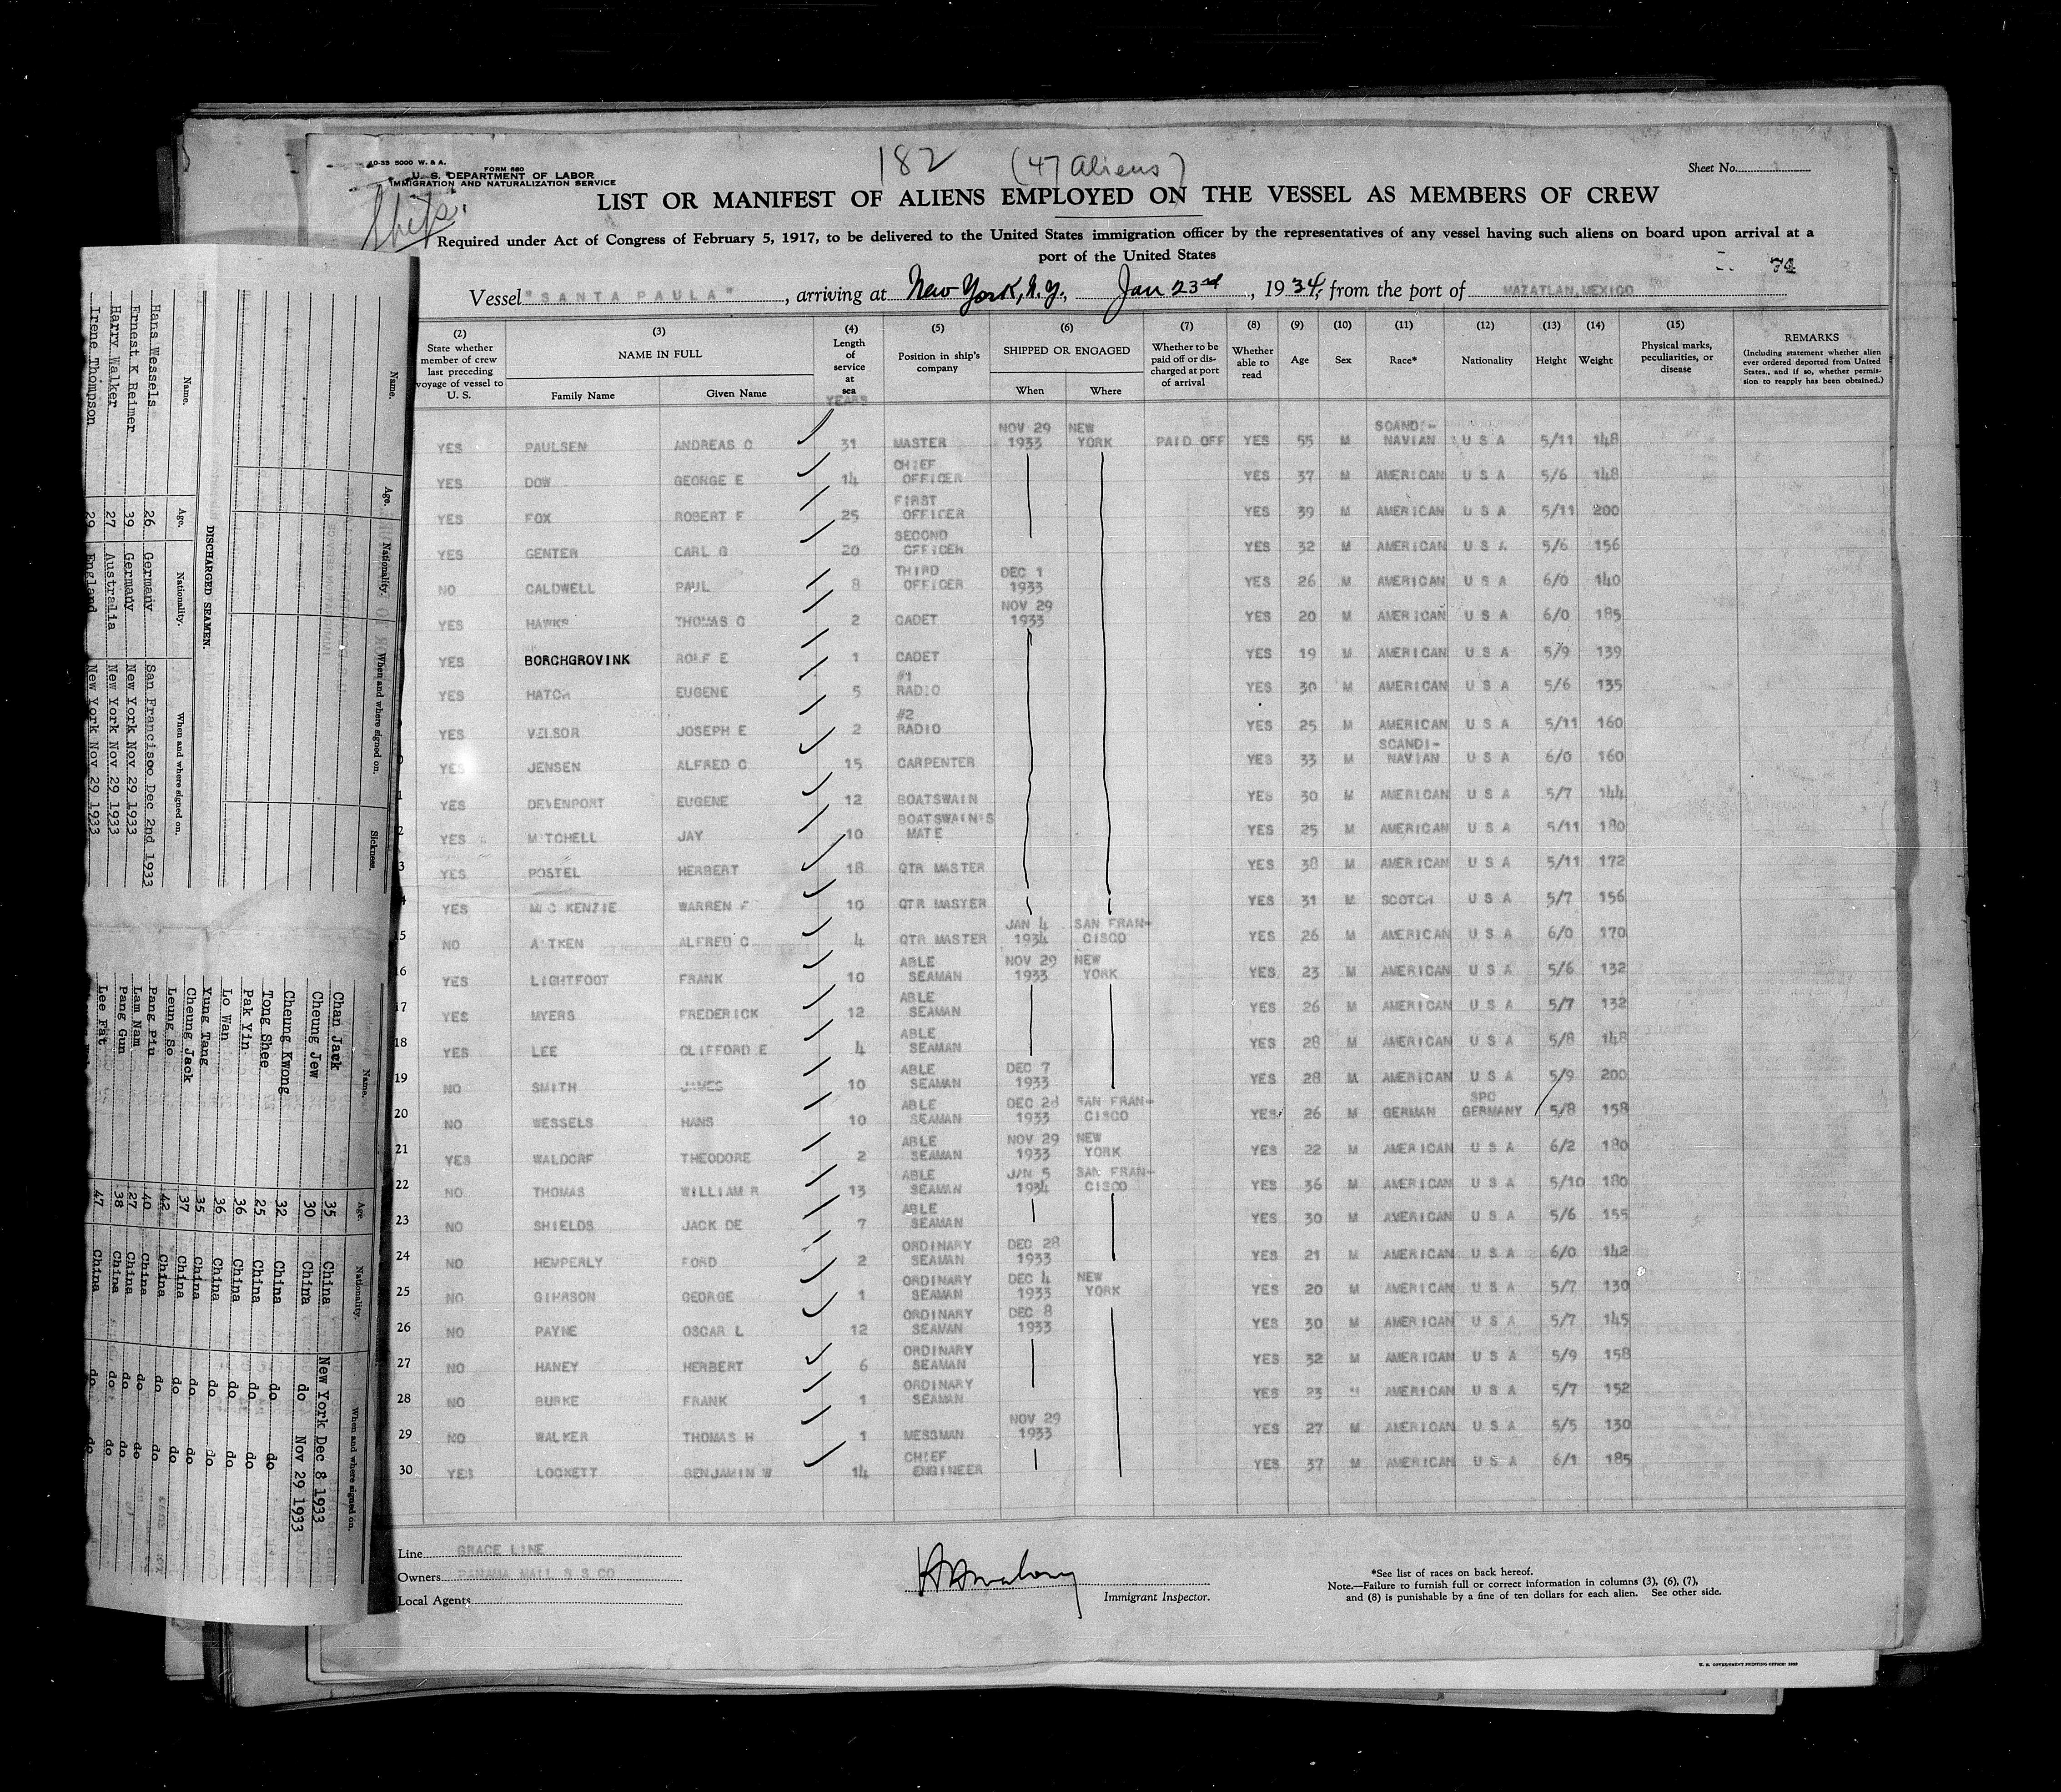 10-33 5000 W. & A.
FORM 680
U. S. DEPARTMENT OF LABOR
IMMIGRATION AND NATURALIZATION SERVICE
182 (47 Aliens)
Sheet No.
LIST OR MANIFEST OF ALIENS EMPLOYED ON THE VESSEL AS MEMBERS OF CREW
Required under Act of Congress of February 5, 1917, to be delivered to the United States immigration officer by the representatives of any vessel having such aliens on board upon arrival at a
port of the United States
74
Vessel "SANTA PAULA", arriving at New York, N.Y., Jan 23rd, 1934, from the port of MAZATLAN, MEXICO
(2) (3) (4) (5) (6) (7) (8) (9) (10) (11) (12) (13) (14) (15)
State whether member of crew last preceding voyage of vessel to U. S.
NAME IN FULL
Family Name Given Name
Length of service at sea
YEARS
Position in ship's company
SHIPPED OR ENGAGED
When Where
Whether to be paid off or discharged at port of arrival
Whether able to read
Age Sex Race* Nationality Height Weight
Physical marks, peculiarities, or disease
REMARKS
(Including statement whether alien ever ordered deported from United States., and if so, whether permission to reapply has been obtained.)
YES PAULSEN ANDREAS C 31 MASTER NOV 29 1933 NEW YORK PAID OFF YES 55 M SCANDI-NAVIAN U S A 5/11 148
YES DOW GEORGE E 14 CHIEF OFFICER YES 37 M AMERICAN U S A 5/6 148
YES FOX ROBERT F 25 FIRST OFFICER YES 39 M AMERICAN U S A 5/11 200
YES GENTER CARL G 20 SECOND OFFICER YES 32 M AMERICAN U S A 5/6 156
NO CALDWELL PAUL 8 THIRD OFFICER DEC 1 1933 YES 26 M AMERICAN U S A 6/0 140
YES HAWKS THOMAS C 2 CADET NOV 29 1933 YES 20 M AMERICAN U S A 6/0 185
YES BORCHGROVINK ROLF E 1 CADET YES 19 M AMERICAN U S A 5/9 139
YES HATCH EUGENE 5 #1 RADIO YES 30 M AMERICAN U S A 5/6 135
YES VELSOR JOSEPH E 2 #2 RADIO YES 25 M AMERICAN U S A 5/11 160
YES JENSEN ALFRED C 15 CARPENTER YES 33 M SCANDI-NAVIAN U S A 6/0 160
YES DEVENPORT EUGENE 12 BOATSWAIN YES 30 M AMERICAN U S A 5/7 144
YES MITCHELL JAY 10 BOATSWAIN'S MATE YES 25 M AMERICAN U S A 5/11 180
YES POSTEL HERBERT 18 QTR MASTER YES 38 M AMERICAN U S A 5/11 172
YES MC KENZIE WARREN F 10 QTR MASTER YES 31 M SCOTCH U S A 5/7 156
15 NO AITKEN ALFRED C 4 QTR MASTER JAN 4 1934 SAN FRAN-CISCO YES 26 M AMERICAN U S A 6/0 170
16 YES LIGHTFOOT FRANK 10 ABLE SEAMAN NOV 29 1933 NEW YORK YES 23 M AMERICAN U S A 5/6 132
17 YES MYERS FREDERICK 12 ABLE SEAMAN YES 26 M AMERICAN U S A 5/7 132
18 YES LEE CLIFFORD E 4 ABLE SEAMAN YES 28 M AMERICAN U S A 5/8 148
19 NO SMITH JAMES 10 ABLE SEAMAN DEC 7 1933 YES 28 M AMERICAN U S A 5/9 200
20 NO WESSELS HANS 10 ABLE SEAMAN DEC 28 1933 SAN FRAN-CISCO YES 26 M GERMAN SPO GERMANY 5/8 158
21 YES WALDORF THEODORE 2 ABLE SEAMAN NOV 29 1933 NEW YORK YES 22 M AMERICAN U S A 6/2 180
22 NO THOMAS WILLIAM R 13 ABLE SEAMAN JAN 5 1934 SAN FRAN-CISCO YES 36 M AMERICAN U S A 5/10 180
23 NO SHIELDS JACK DE 7 ABLE SEAMAN YES 30 M AMERICAN U S A 5/6 155
24 NO HEMPERLY FORD 2 ORDINARY SEAMAN DEC 28 1933 YES 21 M AMERICAN U S A 6/0 142
25 NO GIHRSON GEORGE 1 ORDINARY SEAMAN DEC 4 1933 NEW YORK YES 20 M AMERICAN U S A 5/7 130
26 NO PAYNE OSCAR L 12 ORDINARY SEAMAN DEC 8 1933 YES 30 M AMERICAN U S A 5/7 145
27 NO HANEY HERBERT 6 ORDINARY SEAMAN YES 32 M AMERICAN U S A 5/9 158
28 NO BURKE FRANK 1 ORDINARY SEAMAN YES 23 M AMERICAN U S A 5/7 152
29 NO WALKER THOMAS H 1 MESSMAN NOV 29 1933 YES 27 M AMERICAN U S A 5/5 130
30 YES LOCKETT BENJAMIN W 14 CHIEF ENGINEER YES 37 M AMERICAN U S A 6/1 185
Line GRACE LINE
Owners PANAMA MAIL S S CO
Local Agents
Immigrant Inspector.
*See list of races on back hereof.
Note.—Failure to furnish full or correct information in columns (3), (6), (7),
and (8) is punishable by a fine of ten dollars for each alien. See other side.
U. S. GOVERNMENT PRINTING OFFICE: 1933
Name. Age. Nationality. When and where signed on. Sickness.
DISCHARGED SEAMEN.
Name. Age. Nationality. When and where signed on.
Hans Wessels 26 Germany San Francisco Dec 2nd 1933
Ernest K Reimer 39 Germany New York Nov 29 1933
Harry Walker 27 Australia New York Nov 29 1933
Irene Thompson 29 England New York Nov 29 1933
Name. Age. Nationality. When and where signed on.
Chan Jack 35 China New York Dec 8 1933
Cheung Jew 30 China do Nov 29 1933
Cheung Kwong 32 China do do
Tong Shee 25 China do do
Pak Yin 36 China do do
Lo Wan 36 China do do
Yung Tang 35 China do do
Cheung Jack 37 China do do
Leung So 42 China do do
Pang Piu 40 China do do
Lam Nam 27 China do do
Pang Gun 38 China do do
Lee Fat 47 China do do